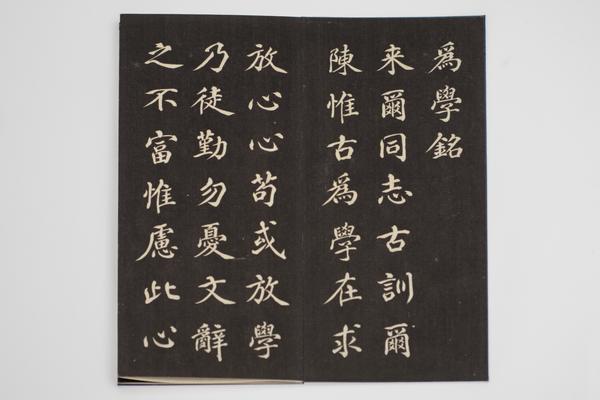 為學銘
来爾同志古訓爾
陳惟古為學在求
放心心苟或放學
乃徒勤勿憂文辭
之不富惟慮此心